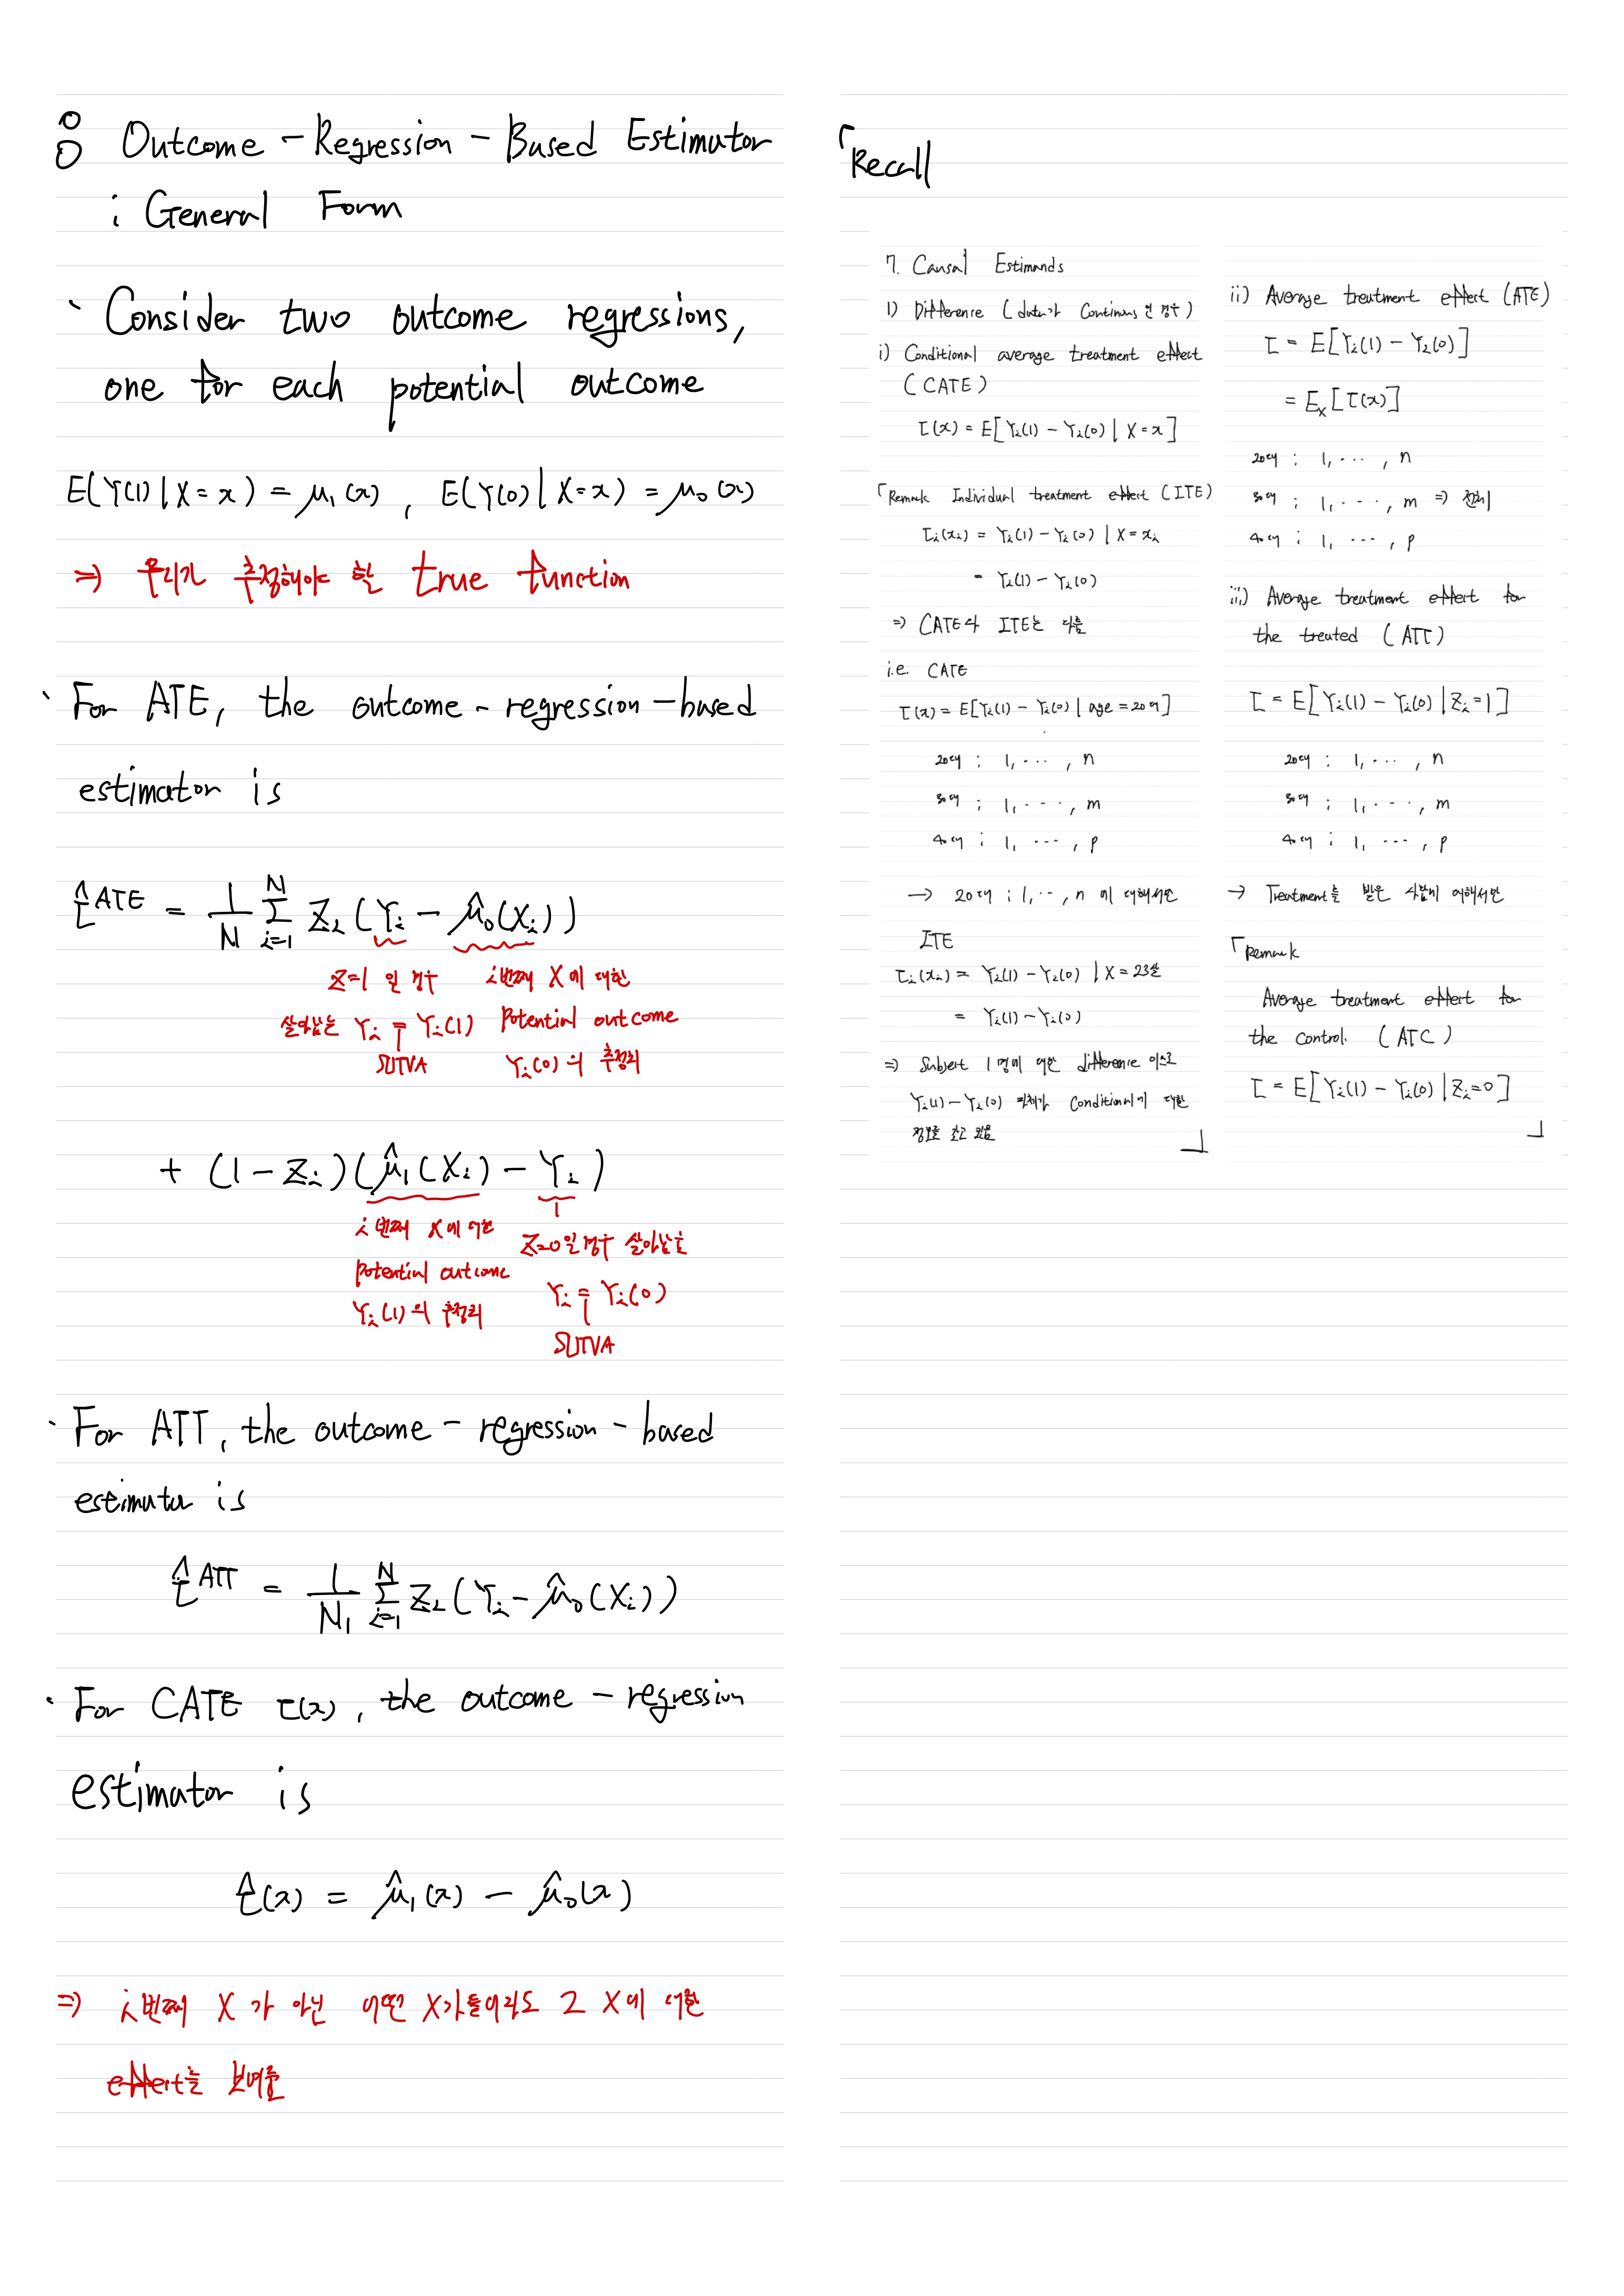 8 Outcome - Regression - Based Estimator
: General Form
` Consider two outcome regressions,
one for each potential outcome
E(Y(1) | X = x) = μ₁(x) , E(Y(0) | X = x) = μ₀(x)
⇒ 우리가 추정해야 할 true function
` For ATE, the outcome - regression - based
estimator is
τ̂^ATE = 1/N Σ_{i=1}^N Z_i (Y_i - μ̂₀(X_i))
Z=1 일 경우 i번째 X에 대한
살아남는 Y_i = Y_i(1) Potential outcome
SUTVA Y_i(0) 의 추정치
+ (1 - Z_i)(μ̂₁(X_i) - Y_i)
i번째 X에 대한 Z=0일 경우 살아남는
potential outcome Y_i = Y_i(0)
Y_i(1)의 추정치 SUTVA
` For ATT, the outcome - regression - based
estimator is
τ̂^ATT = 1/N₁ Σ_{i=1}^N Z_i (Y_i - μ̂₀(X_i))
` For CATE τ(x), the outcome - regression
estimator is
τ̂(x) = μ̂₁(x) - μ̂₀(x)
⇒ i번째 X가 아닌 어떤 X가 들어와도 그 X에 대한
effect를 보여줌
「Recall
7. Causal Estimands
1) Difference (data가 Continuous인 경우)
i) Conditional average treatment effect
(CATE)
τ(x) = E[Y_i(1) - Y_i(0) | X = x]
「Remark Individual treatment effect (ITE)
τ_i(x_i) = Y_i(1) - Y_i(0) | X = x_i
= Y_i(1) - Y_i(0)
⇒ CATE와 ITE는 다름
i.e CATE
τ(x) = E[Y_i(1) - Y_i(0) | age = 20대]
20대 : 1, ··· , n
30대 : 1, ··· , m
40대 : 1, ··· , p
→ 20대 : 1, ··· , n 에 대해서만
ITE
τ_i(x_i) = Y_i(1) - Y_i(0) | X = 23살
= Y_i(1) - Y_i(0)
⇒ Subject 1명에 대한 difference 이므로
Y_i(1) - Y_i(0) 자체가 Conditional에 대한
정보를 갖고 있음 」
ii) Average treatment effect (ATE)
τ = E[Y_i(1) - Y_i(0)]
= E_X[τ(x)]
20대 : 1, ··· , n
30대 : 1, ··· , m ⇒ 전체
40대 : 1, ··· , p
iii) Average treatment effect for
the treated (ATT)
τ = E[Y_i(1) - Y_i(0) | Z_i = 1]
20대 : 1, ··· , n
30대 : 1, ··· , m
40대 : 1, ··· , p
→ Treatment를 받은 사람에 대해서만
「Remark
Average treatment effect for
the control. (ATC)
τ = E[Y_i(1) - Y_i(0) | Z_i = 0]
」